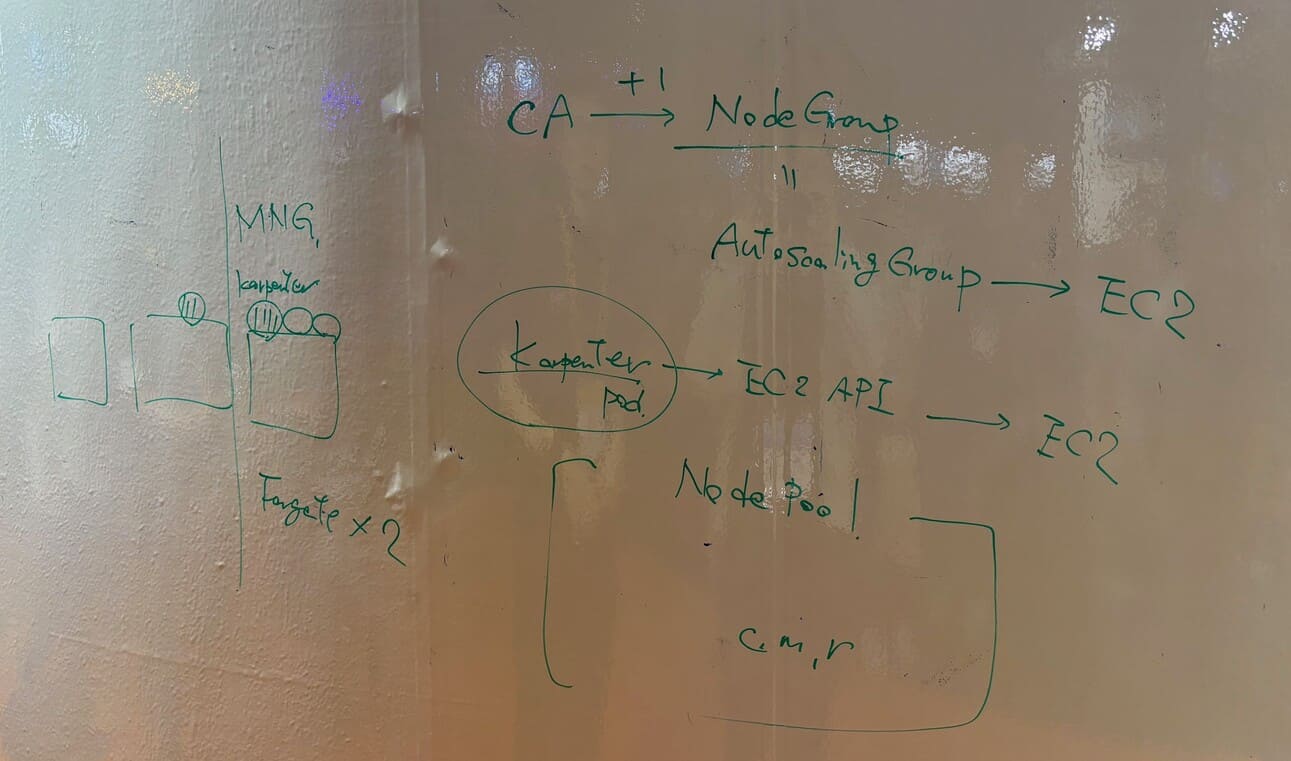 CA +1 → NodeGroup
||
Autoscaling Group → EC2
Karpenter → EC2 API → EC2
pod.
NodePool
c.m,r
MNG,
karpenter
Fargate × 2